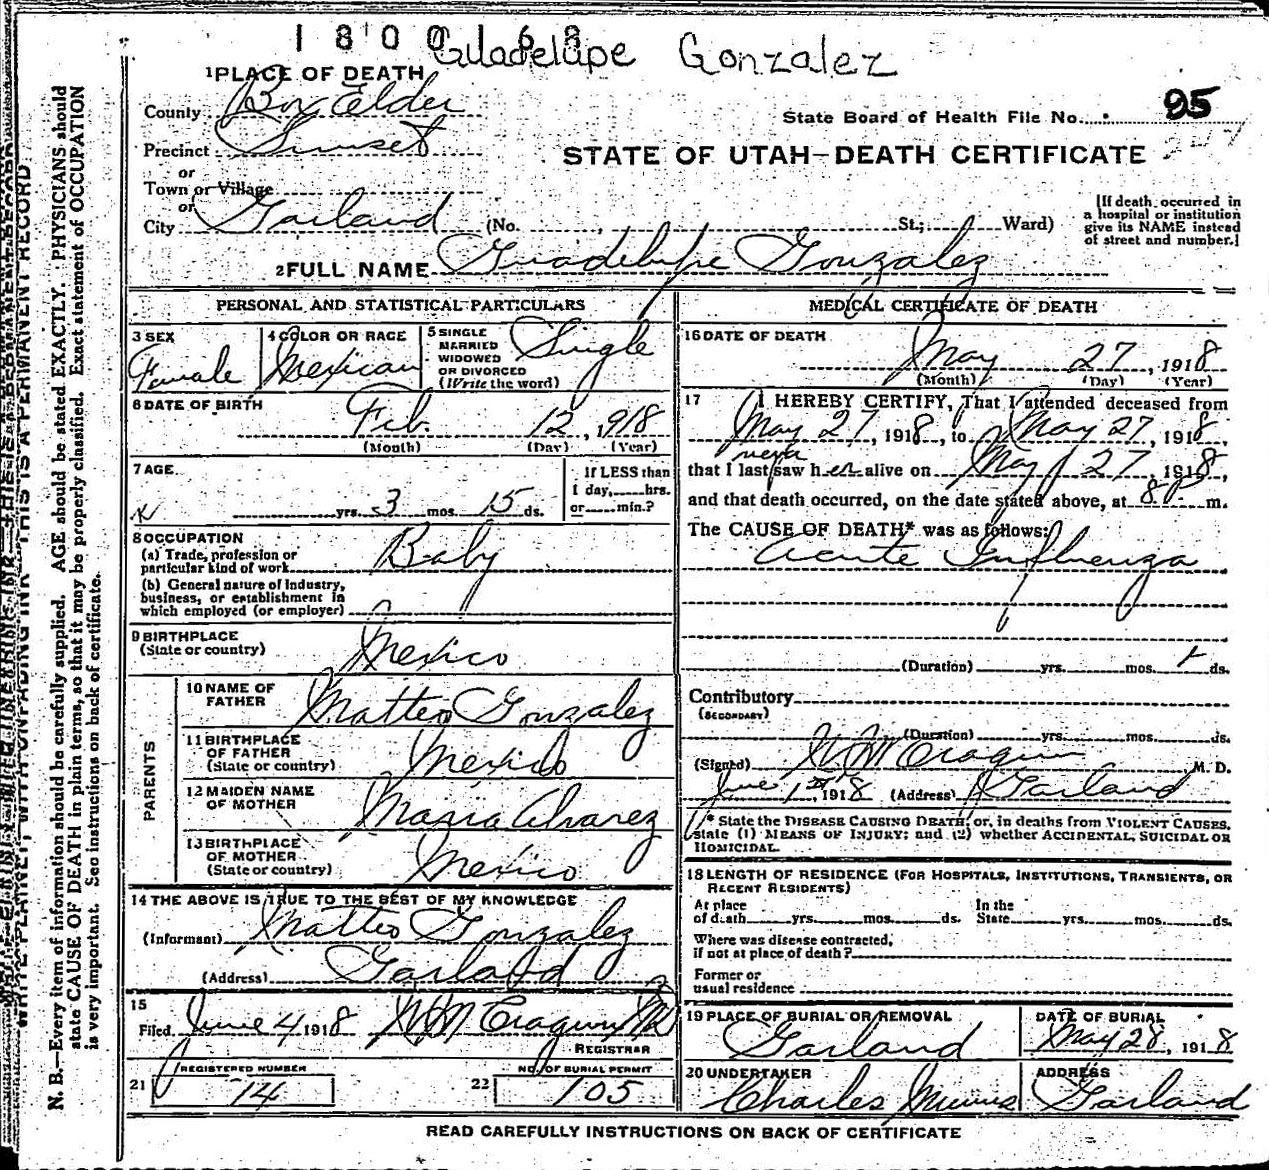 1800168
Guadelupe Gonzalez
1 PLACE OF DEATH
County Box Elder
State Board of Health File No. 95
Precinct Sunset
STATE OF UTAH—DEATH CERTIFICATE
or
Town or Village
or
City Garland (No. , St.; Ward)
[If death occurred in
a hospital or institution
give its NAME instead
of street and number.]
2 FULL NAME Guadelupe Gonzalez
PERSONAL AND STATISTICAL PARTICULARS
3 SEX
Female
4 COLOR OR RACE
Mexican
5 SINGLE
MARRIED
WIDOWED
OR DIVORCED
(Write the word)
Single
6 DATE OF BIRTH
Feb. 12, 918
(Month) (Day) (Year)
7 AGE
yrs. 3 mos. 15 ds.
If LESS than
1 day, hrs.
or min.?
8 OCCUPATION
(a) Trade, profession or
particular kind of work Baby
(b) General nature of Industry,
business, or establishment in
which employed (or employer)
9 BIRTHPLACE
(State or country) Mexico
PARENTS
10 NAME OF
FATHER Matteo Gonzalez
11 BIRTHPLACE
OF FATHER
(State or country) Mexico
12 MAIDEN NAME
OF MOTHER Maria Alvarez
13 BIRTHPLACE
OF MOTHER
(State or country) Mexico
14 THE ABOVE IS TRUE TO THE BEST OF MY KNOWLEDGE
(Informant) Matteo Gonzalez
(Address) Garland
15
Filed June 4 1918 W M Cragun
REGISTRAR
21 REGISTERED NUMBER
14
22 NO. OF BURIAL PERMIT
105
MEDICAL CERTIFICATE OF DEATH
16 DATE OF DEATH
May 27, 1918
(Month) (Day) (Year)
17 I HEREBY CERTIFY, That I attended deceased from
May 27, 1918, to May 27, 1918,
that I last saw her alive on May 27, 1918,
and that death occurred, on the date stated above, at 8 P. m.
The CAUSE OF DEATH* was as follows:
acute Influenza
(Duration) yrs. mos. 1 ds.
Contributory
(SECONDARY)
(Duration) yrs. mos. ds.
(Signed) W M Cragun M. D.
June 1st, 1918 (Address) Garland
* State the DISEASE CAUSING DEATH, or, in deaths from VIOLENT CAUSES,
state (1) MEANS OF INJURY; and (2) whether ACCIDENTAL, SUICIDAL OR
HOMICIDAL.
18 LENGTH OF RESIDENCE (FOR HOSPITALS, INSTITUTIONS, TRANSIENTS, OR
RECENT RESIDENTS)
At place
of death yrs. mos. ds.
In the
State yrs. mos. ds.
Where was disease contracted,
if not at place of death?
Former or
usual residence
19 PLACE OF BURIAL OR REMOVAL
Garland
DATE OF BURIAL
May 28, 1918
20 UNDERTAKER
Charles
ADDRESS
Garland
READ CAREFULLY INSTRUCTIONS ON BACK OF CERTIFICATE
WRITE PLAINLY, WITH UNFADING INK—THIS IS A PERMANENT RECORD
N. B.—Every item of information should be carefully supplied. AGE should be stated EXACTLY. PHYSICIANS should
state CAUSE OF DEATH in plain terms, so that it may be properly classified. Exact statement of OCCUPATION
is very important. See instructions on back of certificate.